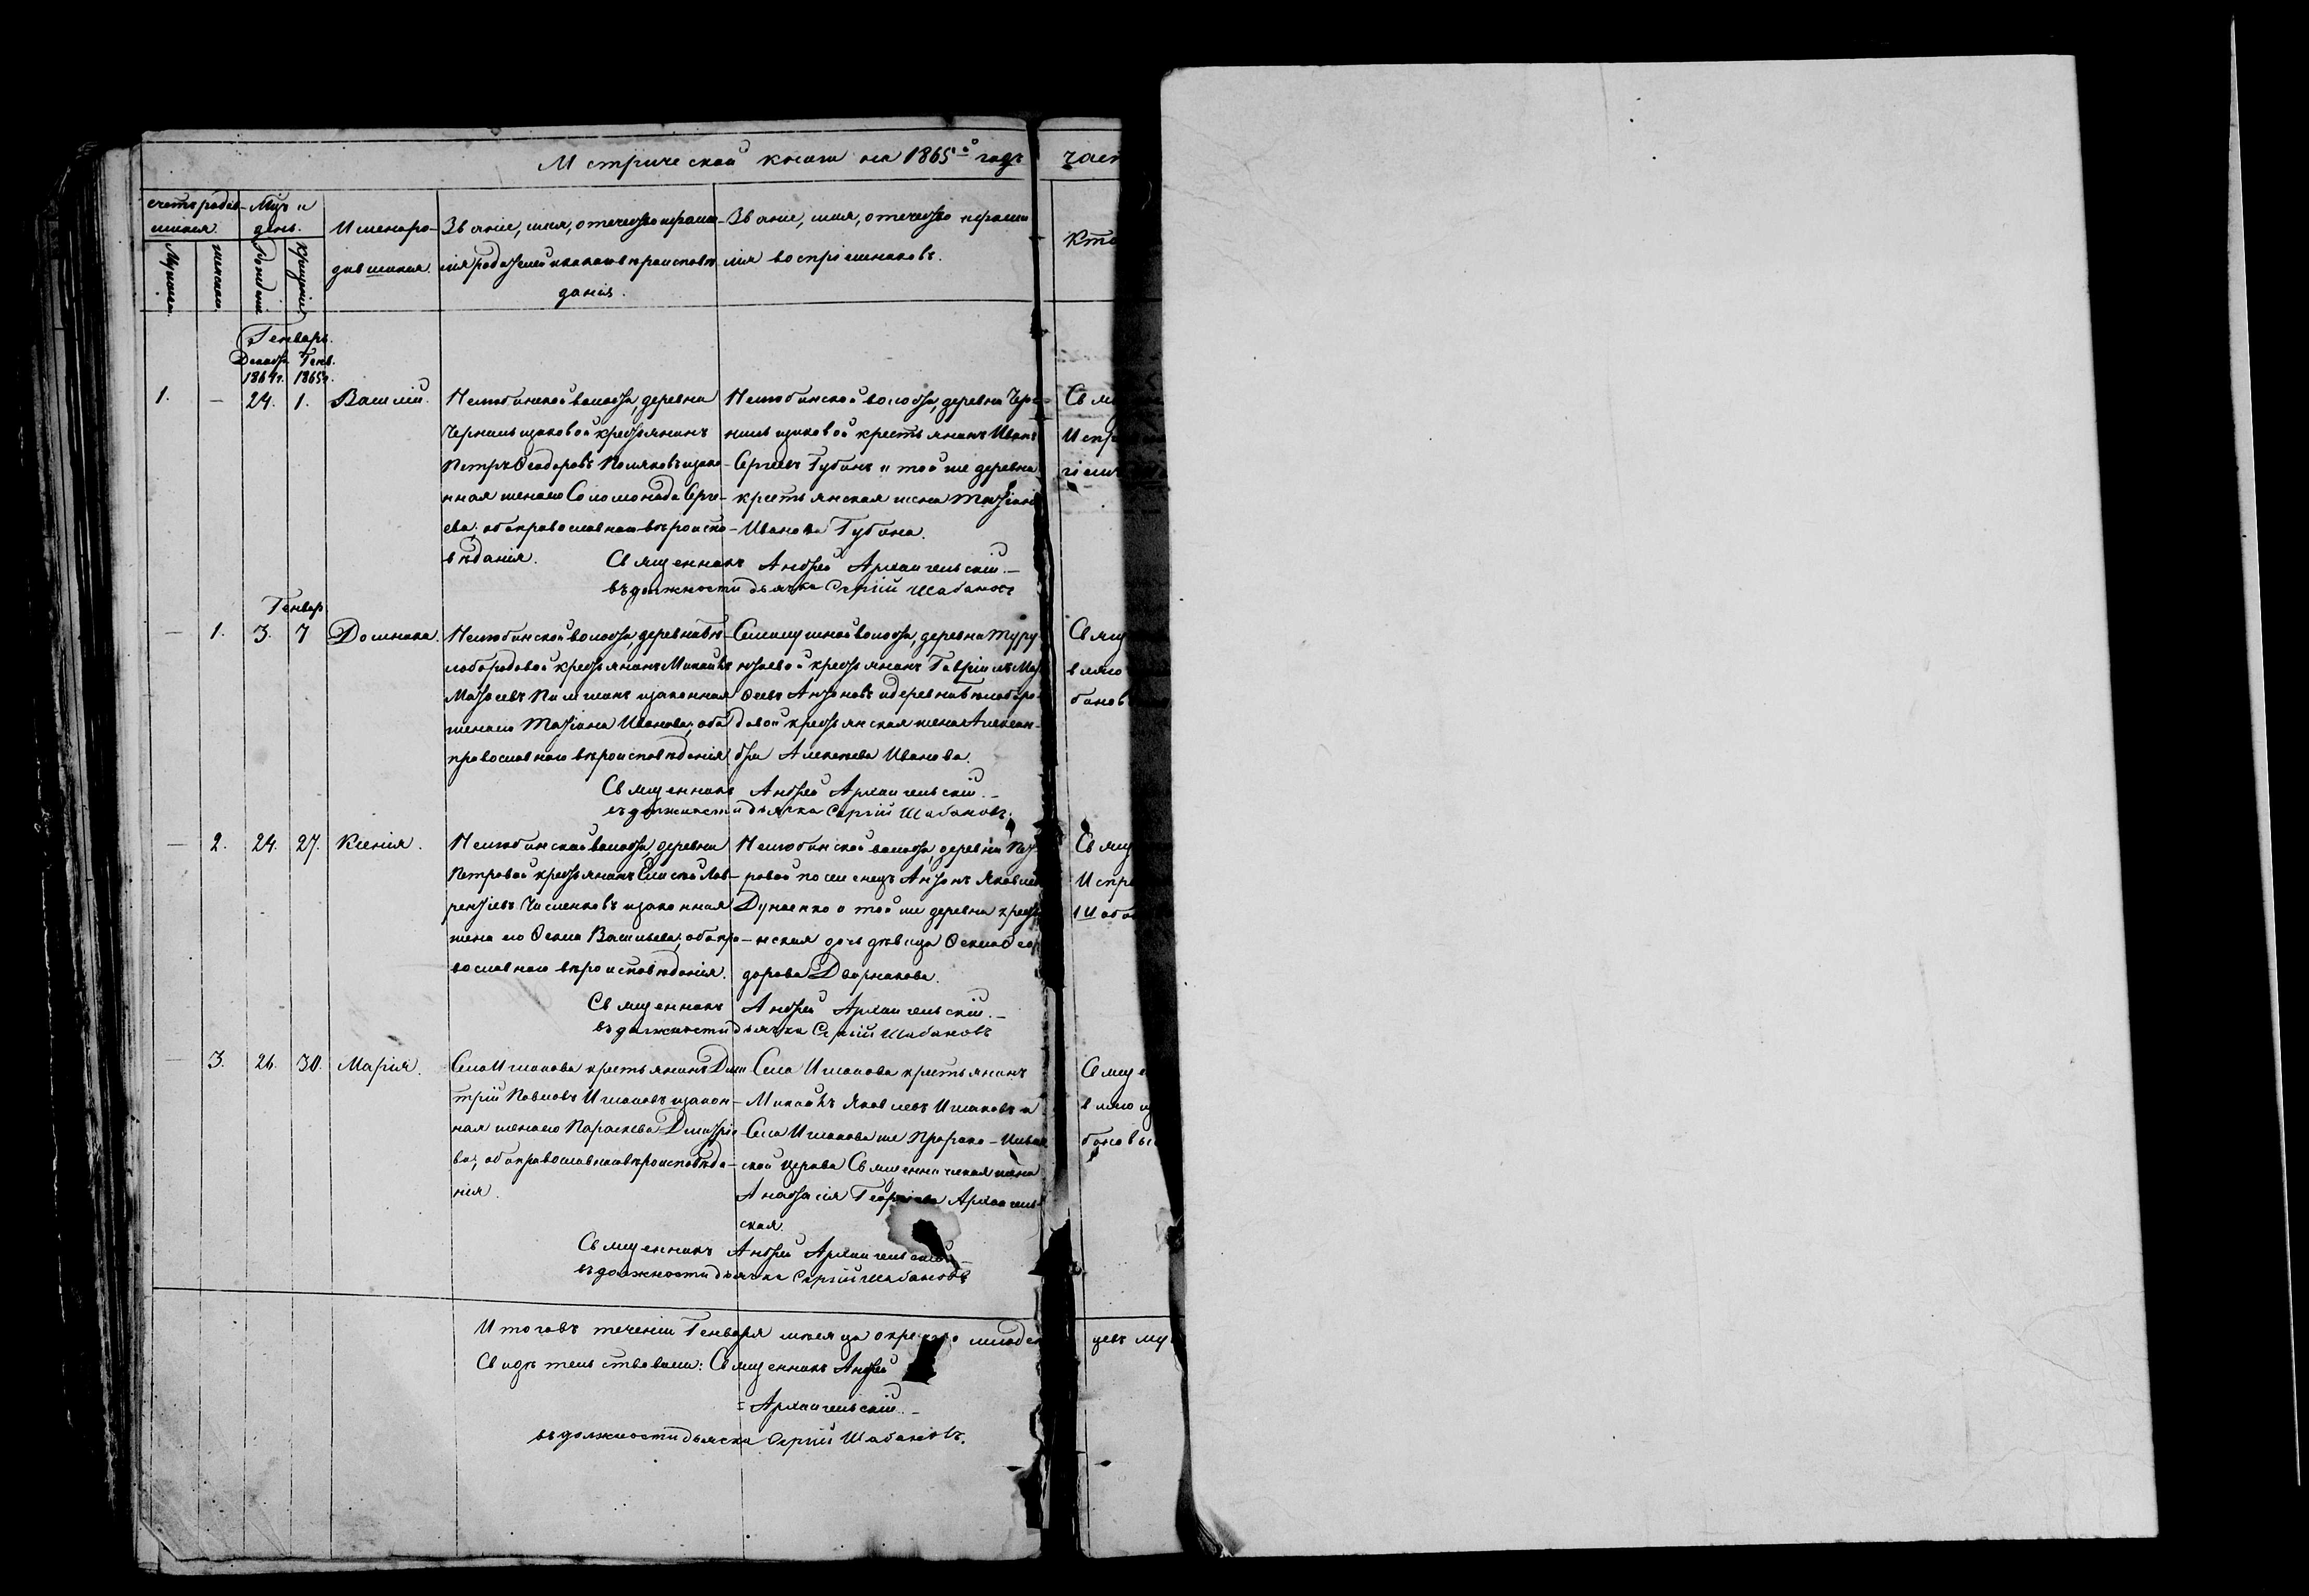 Метрической книги на 1865й годъ част
счетъ родив-
шихся.
Мужеска.
женска.
Мцъ и
день.
Рожденiя.
Крещенiя.
Имена ро-
дившихся.
Званiе, имя, отечество и фами-
лiя родителей и какого вѣроисповѣ-
данiя.
Званiе, имя, отечество и фами
лiя воспрiемниковъ.
Кто
Генварь.
Декабр. Генв.
1864г. 1865г.
1. – 24. 1. Василiй.
Нелюбинской волости, деревни
Чернильщиковой крестьянинъ
Петръ Ѳеодоровъ Поляковъ и зако-
нная жена его Соломонида Серге-
ева; оба православнаго вѣроиспо-
вѣданiя.
Нелюбинской волости, деревни Чер-
нильщиковой крестьянинъ Иванъ
Сергѣевъ Губинъ и той же деревни
крестьянская жена Татiана
Иванова Губина.
Священникъ Андрей Архангельскiй.–
въ должности дьячка Сергiй Шабановъ
Генвар
– 1. 3. 7 Домника.
Нелюбинской волости, деревни Бѣ-
лобородовой крестьянинъ Михаилъ
Матѳеевъ и законная
жена его Татiана Иванова; оба
православнаго вѣроисповѣданiя.
Семилужной волости, деревни Туру
нтаевой крестьянинъ Гаврiилъ Мат
ѳеевъ Антоновъ и деревни Бѣлоборо-
довой крестьянская жена Алексан-
дра Алексѣева Иванова.
Священникъ Андрей Архангельскiй.–
въ должности дьячка Сергiй Шабановъ.
– 2. 24. 27. Ксенiя.
Нелюбинской волости, деревни
Петровой крестьянинъ Елисей Лав-
рентiевъ Численковъ и законная
жена его Ѳекла Васильева; оба пра-
вославнаго вѣроисповѣданiя.
Нелюбинской волости, деревни Пет
ровой поселенецъ Антонъ Яковлев
Дунаенко и той же деревни кресть
янская дочь дѣвица Ѳекла Ѳео
дорова Дворникова.
Священникъ Андрей Архангельскiй.–
въ должности дьячка Сергiй Шабановъ
– 3. 26. 30. Марiя.
Села Иглакова крестьянинъ Дми
трiй Павловъ Иглаковъ и закон-
ная жена его Параскева Дмитрiе
ва; оба православнаго вѣроисповѣда-
нiя.
Села Иглакова крестьянинъ
Михаилъ Яковлевъ Иглаковъ и
Села Иглакова же Пророко-Ильин
ской церкви Священническая жена
Анастасiя Георгiева Архангель-
ская.
Священникъ Андрей Архангельскiй
въ должности дьячка Сергiй Шабановъ
Итого въ теченiи Генваря мѣсяца окрещено младен цевъ му
Свидѣтельствовали: Священникъ Андрей
Архангельскiй.–
въ должности дьячка Сергiй Шабановъ.